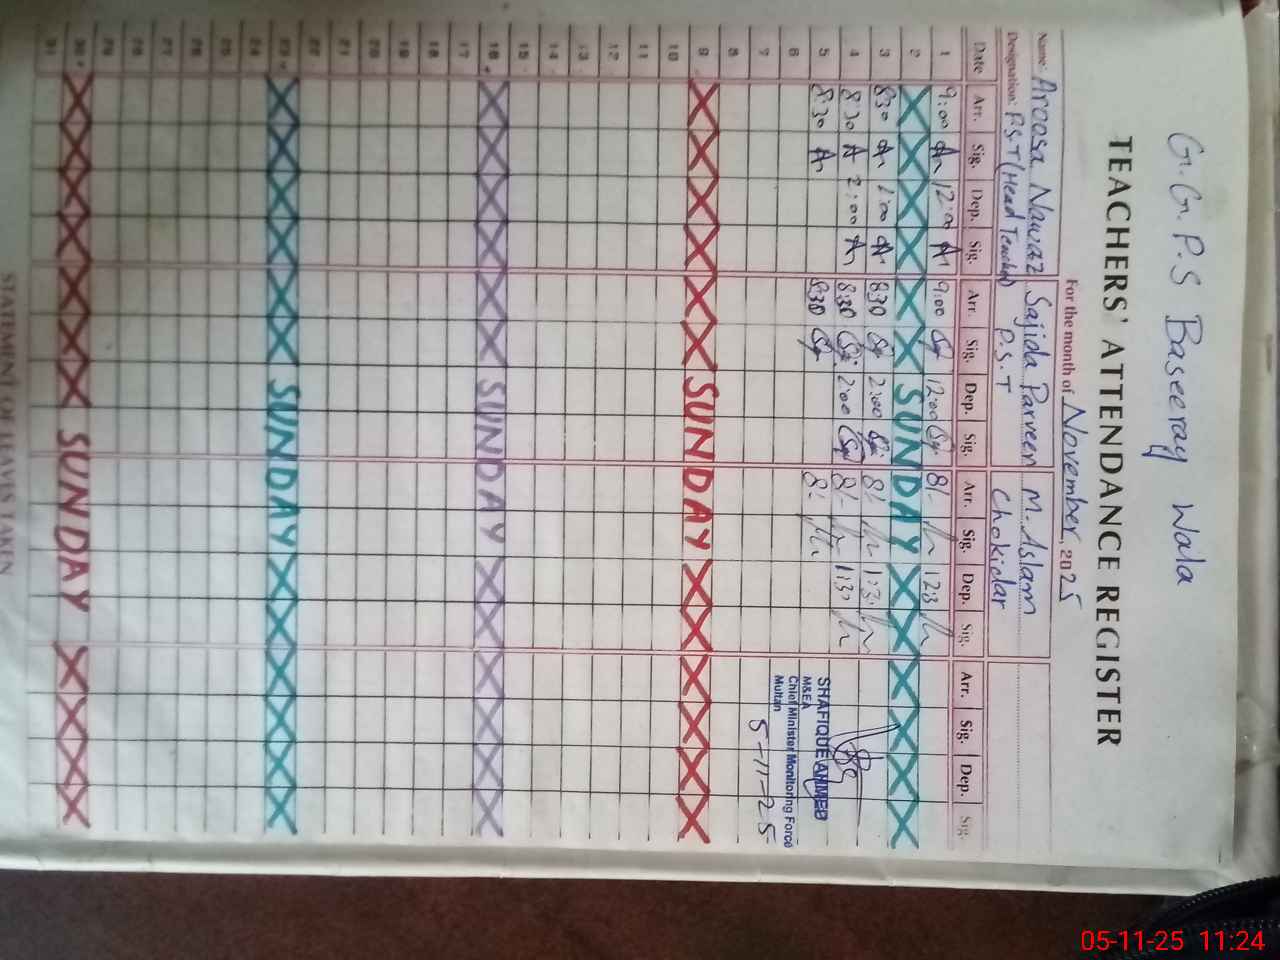 G.G.P.S Baseeray Wala
TEACHERS' ATTENDANCE REGISTER
For the month of November, 2025
Name: Aroosa Nawaz Sajida Parveen M. Aslam
Designation: P.S.T (Head Teacher) P.S.T Chokidar
Date Arr. Sig. Dep. Sig. Arr. Sig. Dep. Sig. Arr. Sig. Dep. Sig. Arr. Sig. Dep. Sig.
1 9:00 12:00 9:00 12:00 8/- 12:3
2 SUNDAY
3 8:30 8:30 2:00 8/- 1:3
4 8:30 2:00 8:30 2:00 8/- 1:3
5 8:30 8:30 8/-
6
7
8
9 SUNDAY
10
11
12
13
14
15
16 SUNDAY
17
18
19
20
21
22
23 SUNDAY
24
25
26
27
28
29
30 SUNDAY
31
SHAFIQUE AHMED
M&EA
Chief Minister Monitoring Force
Multan
5-11-25
STATEMENT OF LEAVES TAKEN
05-11-25 11:24